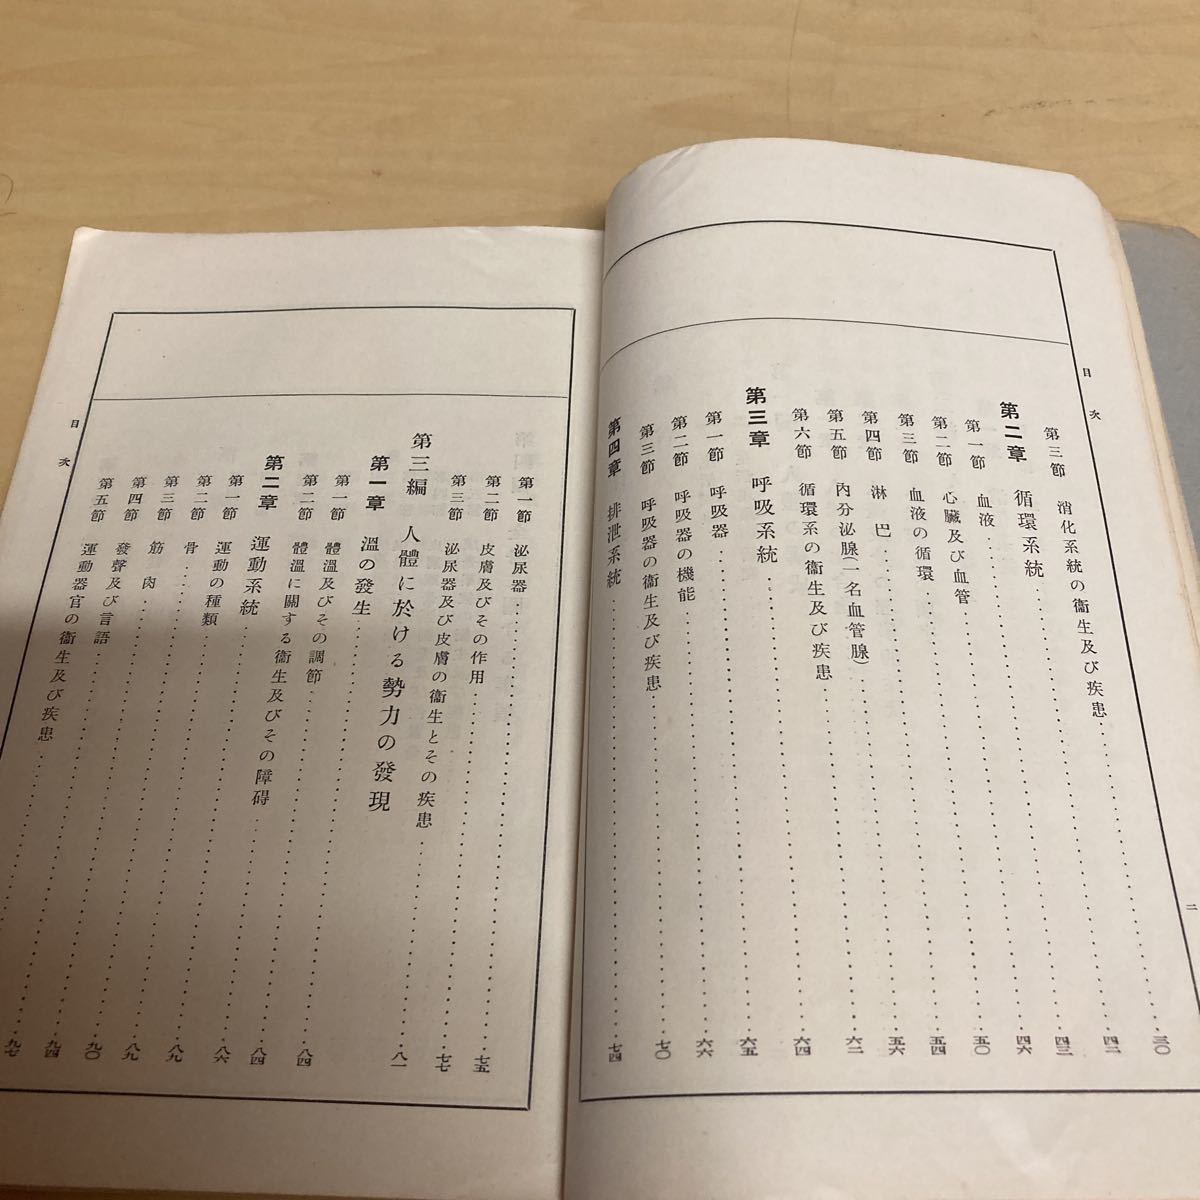 目次
二
第三節 消化系統の衞生及び疾患……三〇
第二章 循環系統……四二
第一節 血液……四三
第二節 心臟及び血管……四六
第三節 血液の循環……五〇
第四節 淋巴……五四
第五節 內分泌腺(一名血管腺)……五六
第六節 循環系の衞生及び疾患……六二
第三章 呼吸系統……六四
第一節 呼吸器……六五
第二節 呼吸器の機能……六六
第三節 呼吸器の衞生及び疾患……七〇
第四章 排泄系統……七四
第一節 泌尿器……七五
第二節 皮膚及びその作用……七七
第三節 泌尿器及び皮膚の衞生とその疾患……八一
第三編 人體に於ける勢力の發現
第一章 溫の發生……八四
第一節 體溫及びその調節……八四
第二節 體溫に關する衞生及びその障碍……八六
第二章 運動系統……八九
第一節 運動の種類……八九
第二節 骨……九〇
第三節 筋肉……九四
第四節 發聲及び言語……九七
第五節 運動器官の衞生及び疾患……
目次